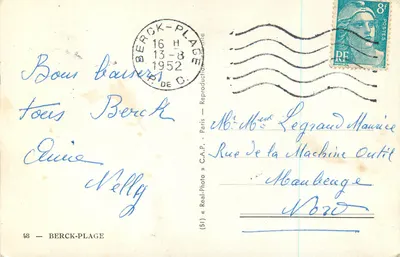 BERCK-PLAGE
16 H
13-8
1952
P. DE C.
8F
POSTES
RF
Bons baisers
tous Berck
Annie
Nelly
Mr Mme Legrand Maurice
Rue de la Machine Outil
Maubeuge
Nord
(51) « Real-Photo » C.A.P. - Paris — Reproduction
98 — BERCK-PLAGE